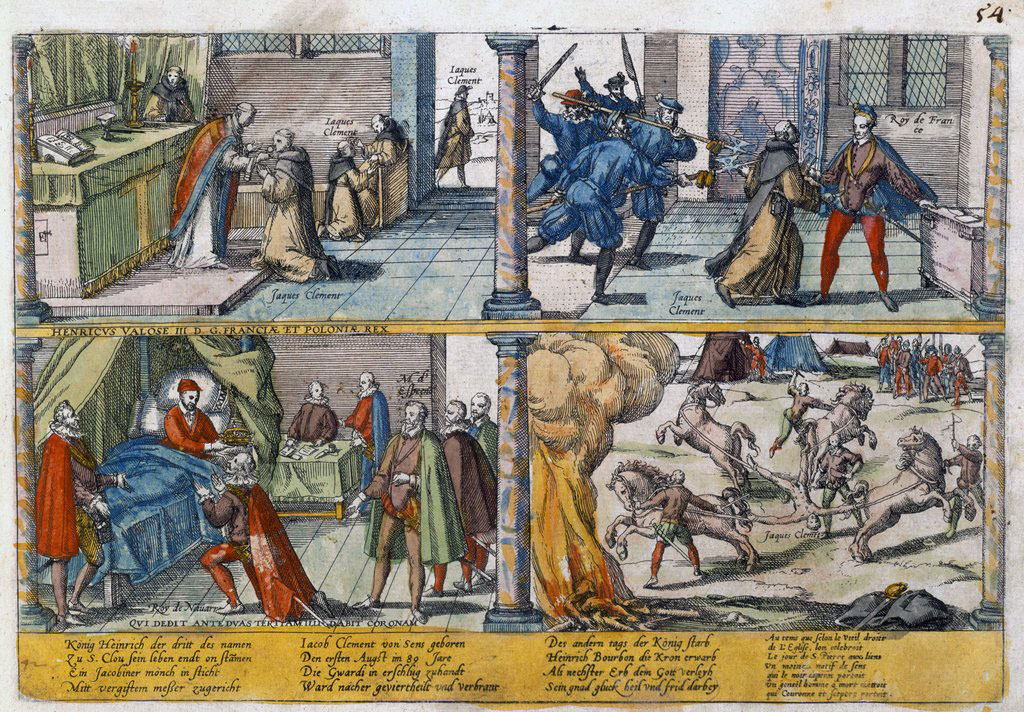 54
Iaques
Clement
Iaques
Clement
Jaques Clement
Roy de Fran
ce
Jaques
Clement
HENRICVS VALOSE III D. G. FRANCIÆ ET POLONIÆ REX
M. d'
Roy de Nauarre
QVI DEDIT ANTE DVAS DABIT CORONAM
Jaques Clement
König Heinrich der dritt des namen
Zu S. Clou sein leben endt on stämen
Ein Jacobiner mönch in sticht
Mitt vergiftem meßer zugericht
Iacob Clement von Sens geboren
Den ersten Augst im 89 Jare
Die Gwardi in erschlug zuhandt
Ward nacher geviertheilt vnd verbrant
Des andern tags der König starb
Heinrich Bourbon die Kron erwarb
Als nechster Erb dem Gott verleyh
Sein gnad gluck heil vnd frid darbey
Au tems que selon le Vieil droict
de L'Eglise, lon celebroit
Le jour de S. Pierre aux liens
Vn moine natif de sens
qui le noir capron portoit
Vn gentil homme a mort mettoit
qui Couronne et sceptre portoit